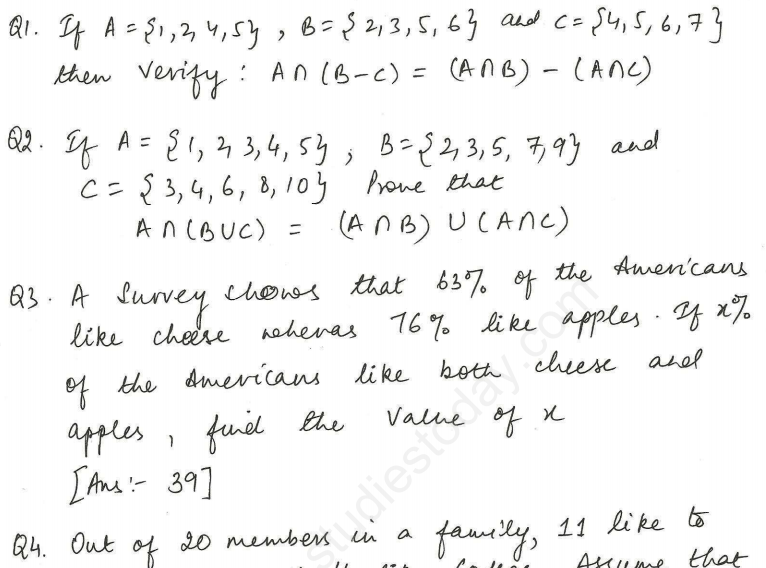 Q1. If A = {1, 2, 4, 5} , B = {2, 3, 5, 6} and C = {4, 5, 6, 7}
then verify : A ∩ (B - C) = (A ∩ B) - (A ∩ C)
Q2. If A = {1, 2 3, 4, 5} ; B = {2, 3, 5, 7, 9} and
C = {3, 4, 6, 8, 10} Prove that
A ∩ (B ∪ C) = (A ∩ B) ∪ (A ∩ C)
Q3. A Survey shows that 63% of the Americans
like cheese wheras 76% like apples. If x%
of the Americans like both cheese and
apples , find the value of x
[Ans :- 39]
Q4. Out of 20 members in a family, 11 like to
Assume that
studiestoday.com